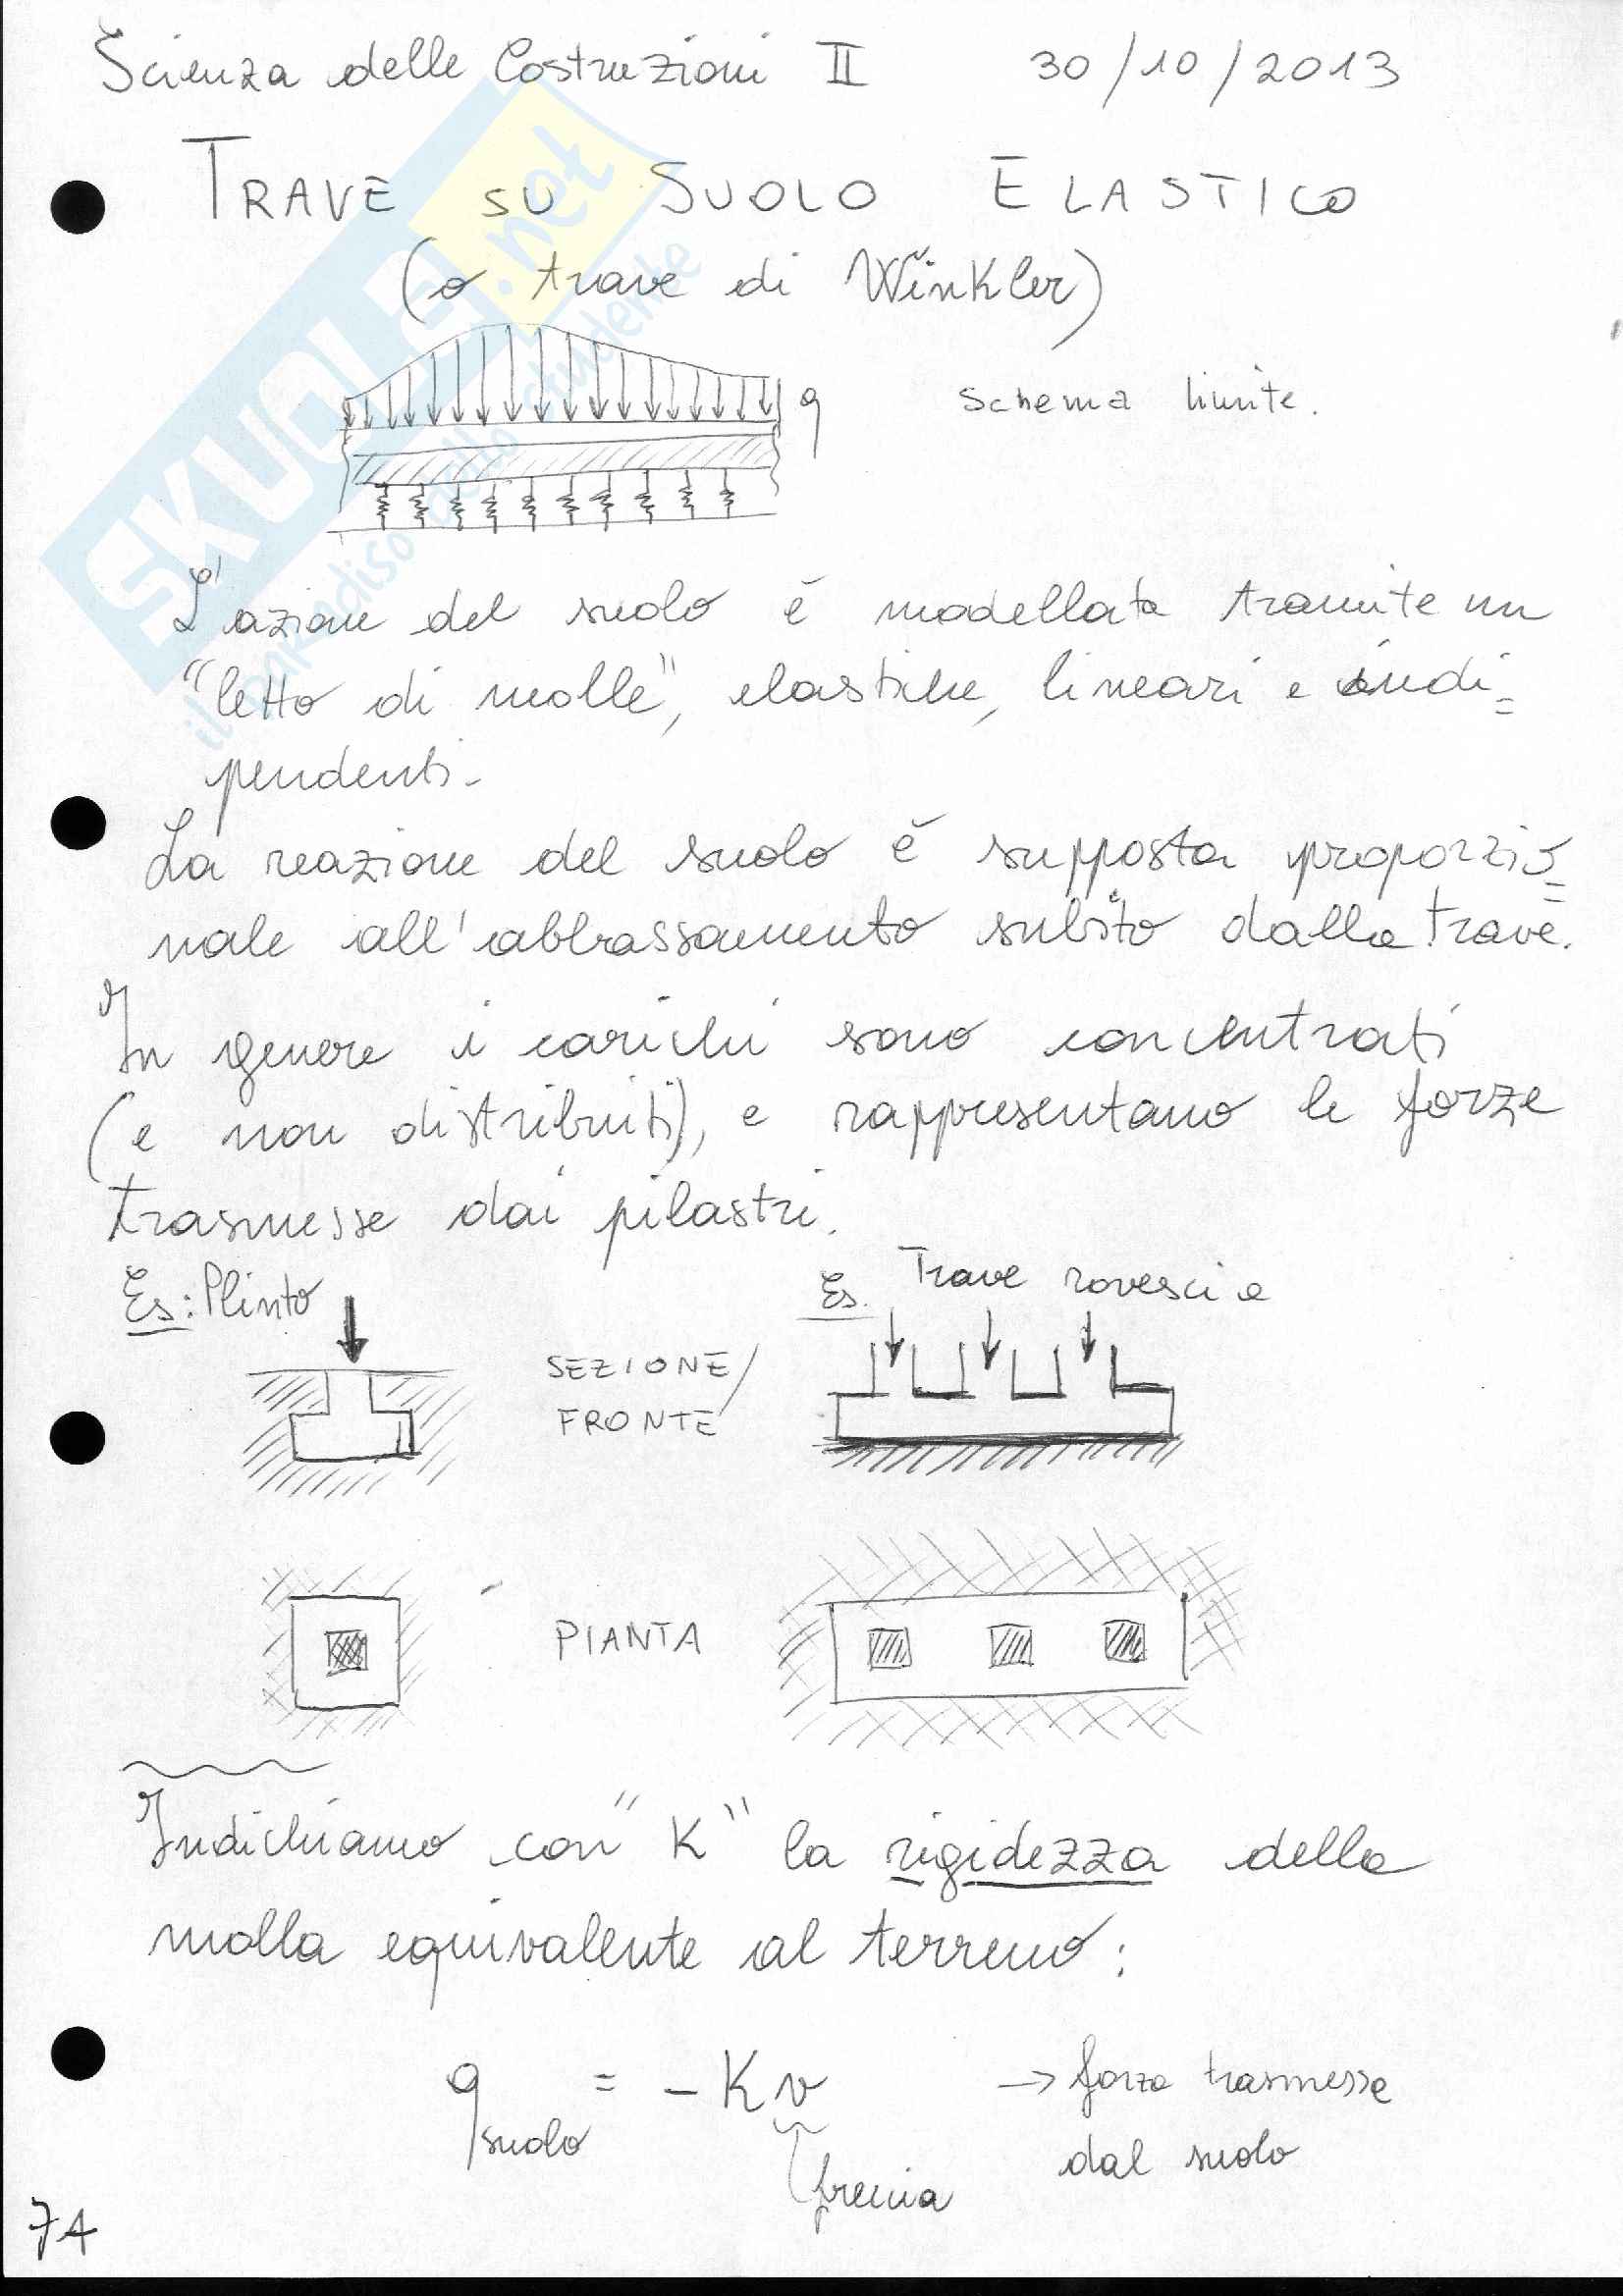 Scienza delle Costruzioni II 30/10/2013
TRAVE SU SUOLO ELASTICO
(o trave di Winkler)
q schema limite.
L'azione del suolo è modellata tramite un
"letto di molle", elastiche, lineari e indi=
pendenti.
La reazione del suolo è supposta proporzio=
nale all'abbassamento subito dalla trave.
In genere i carichi sono concentrati
(e non distribuiti), e rappresentano le forze
trasmesse dai pilastri.
Es: Plinto Es. Trave rovescia
SEZIONE/
FRONTE
PIANTA
Indichiamo con "K" la rigidezza della
molla equivalente al terreno:
q suolo = -Kv → forza trasmessa
dal suolo
freccia
74
SKUOLA.net
il paradiso dello studente